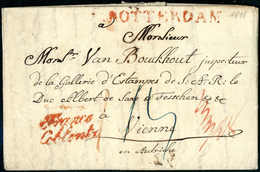 ROTTERDAM
à
Monsieur
Monsr. Van Bouckhout Inspecteur
de la Gallerie d'Estampes de S: A: R: le
Duc Albert de Saxe à Tesschen &c
à
Vienne
en Autriche
franco
Coblentz